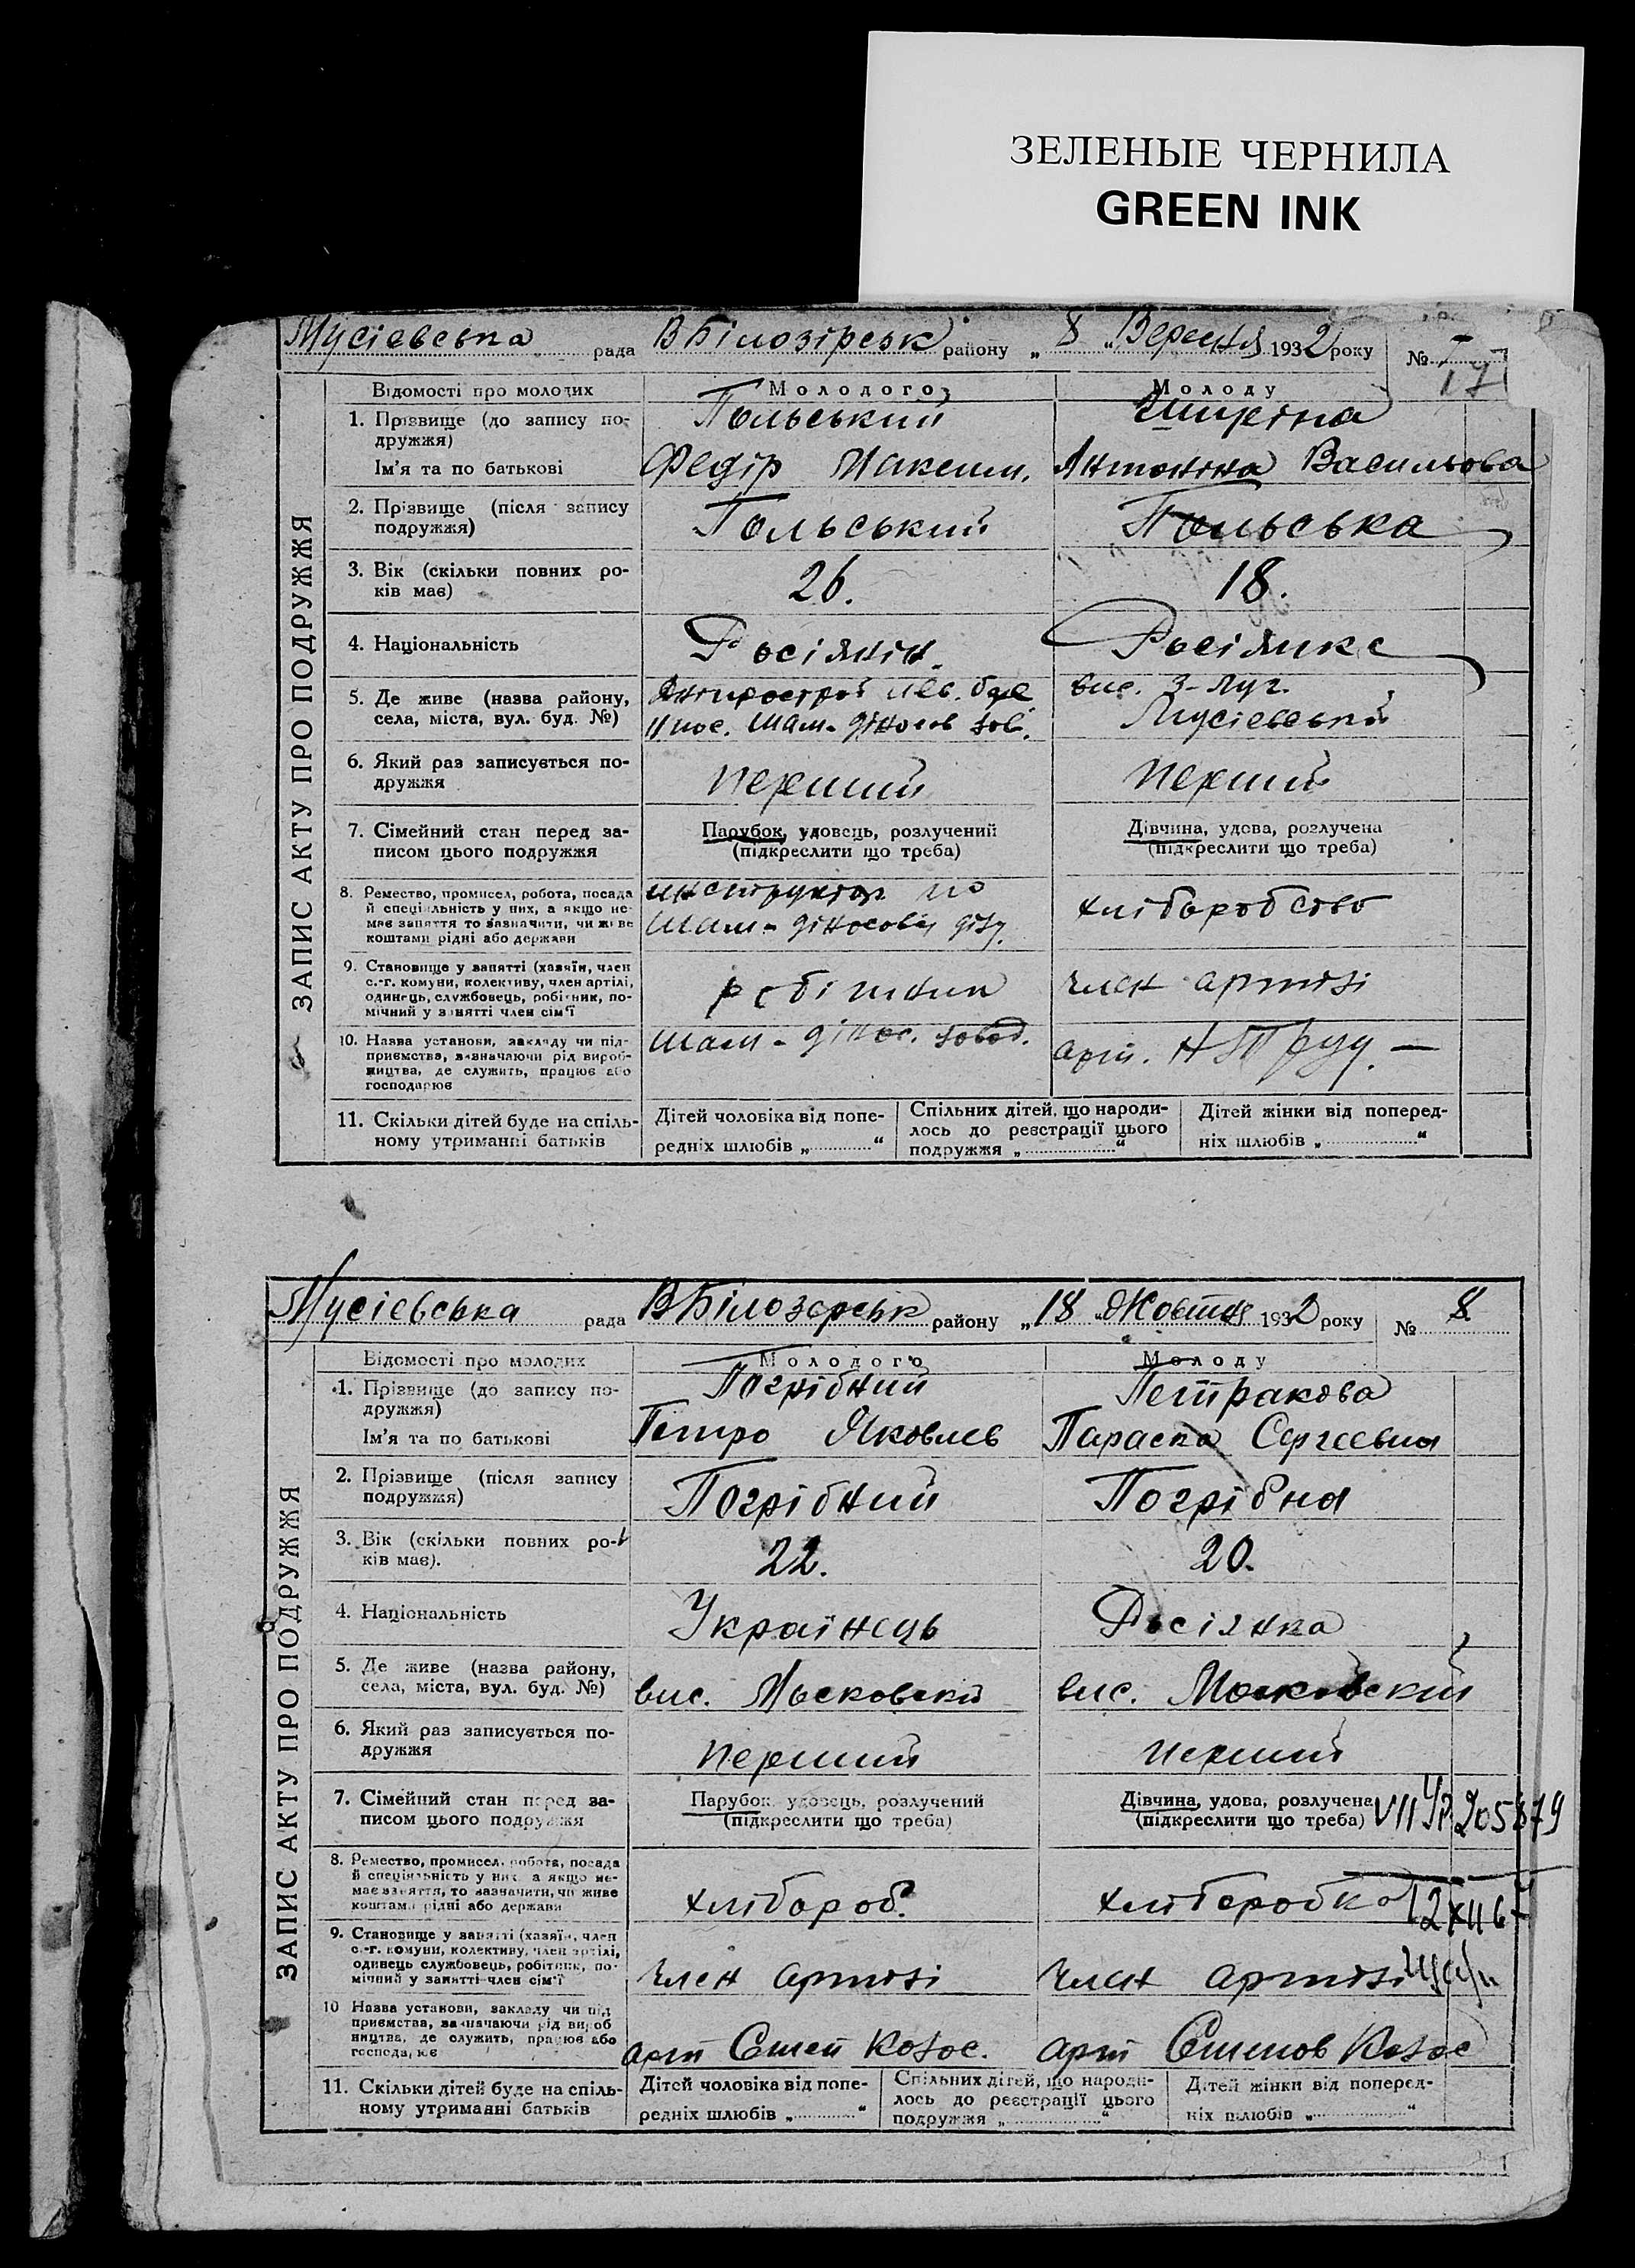 ЗЕЛЕНЫЕ ЧЕРНИЛА
GREEN INK
Мусієвська рада ВБілозірськ району „ 8 „ Вересня 1932 року № 17
ЗАПИС АКТУ ПРО ПОДРУЖЖЯ
Відомості про молодих Молодого Молоду
1. Прізвище (до запису подружжя) Польський
Ім'я та по батькові Федір Максим. Антоніна Васильова
2. Прізвище (після запису подружжя) Польський Польська
3. Вік (скільки повних років має) 26. 18.
4. Національність Росіянін. Росіянка
5. Де живе (назва району, села, міста, вул. буд. №) вис. 3-Луг.
Мусієвський
6. Який раз записується подружжя перший перший
7. Сімейний стан перед записом цього подружжя Парубок, удовець, розлучений (підкреслити що треба) Дівчина, удова, розлучена (підкреслити що треба)
8. Ремество, промисел, робота, посада й спеціяльність у них, а якщо немає заняття то зазначити, чи живе коштами рідні або держави инструктор по хліборобство
9. Становище у занятті (хазяїн, член с.-г. комуни, колективу, член артілі, одинець, службовець, робітник, помічний у занятті член сім'ї робітник член артілі
10. Назва установи, закладу чи підприємства, зазначаючи рід виробництва, де служить, працює або господарює шам - дінос. завод. арт.
11. Скільки дітей буде на спільному утриманні батьків Дітей чоловіка від попередніх шлюбів „ “ Спільних дітей, що народилось до реєстрації цього подружжя „ “ Дітей жінки від попередніх шлюбів „ “
Мусієвська рада ВБілозерськ району „ 18 „ Жовтня 1932 року № 8
ЗАПИС АКТУ ПРО ПОДРУЖЖЯ
Відомості про молодих Молодого Молоду
1. Прізвище (до запису подружжя) Погрібний Петракова
Ім'я та по батькові Петро Яковлев Параска Сергеевна
2. Прізвище (після запису подружжя) Погрібний Погрібна
3. Вік (скільки повних років має). 22. 20.
4. Національність Українець Росіянка
5. Де живе (назва району, села, міста, вул. буд. №) вис. Московскій вис. Московский
6. Який раз записується подружжя перший перший
7. Сімейний стан перед записом цього подружжя Парубок, удовець, розлучений (підкреслити що треба) Дівчина, удова, розлучена (підкреслити що треба)
8. Ремество, промисел, робота, посада й спеціяльність у них, а якщо немає заняття, то зазначити, чи живе коштами рідні або держави хлібороб. хліборобка
9. Становище у занятті (хазяїн, член с.-г. комуни, колективу, член артілі, одинець службовець, робітник, помічний у занятті член сім'ї член артілі член артілі
10 Назва установи, закладу чи підприємства, зазначаючи рід виробництва, де служить, працює або господарює арт
11. Скільки дітей буде на спільному утриманні батьків Дітей чоловіка від попередніх шлюбів „ “ Спільних дітей, що народилось до реєстрації цього подружжя „ “ Дітей жінки від попередніх шлюбів „ “